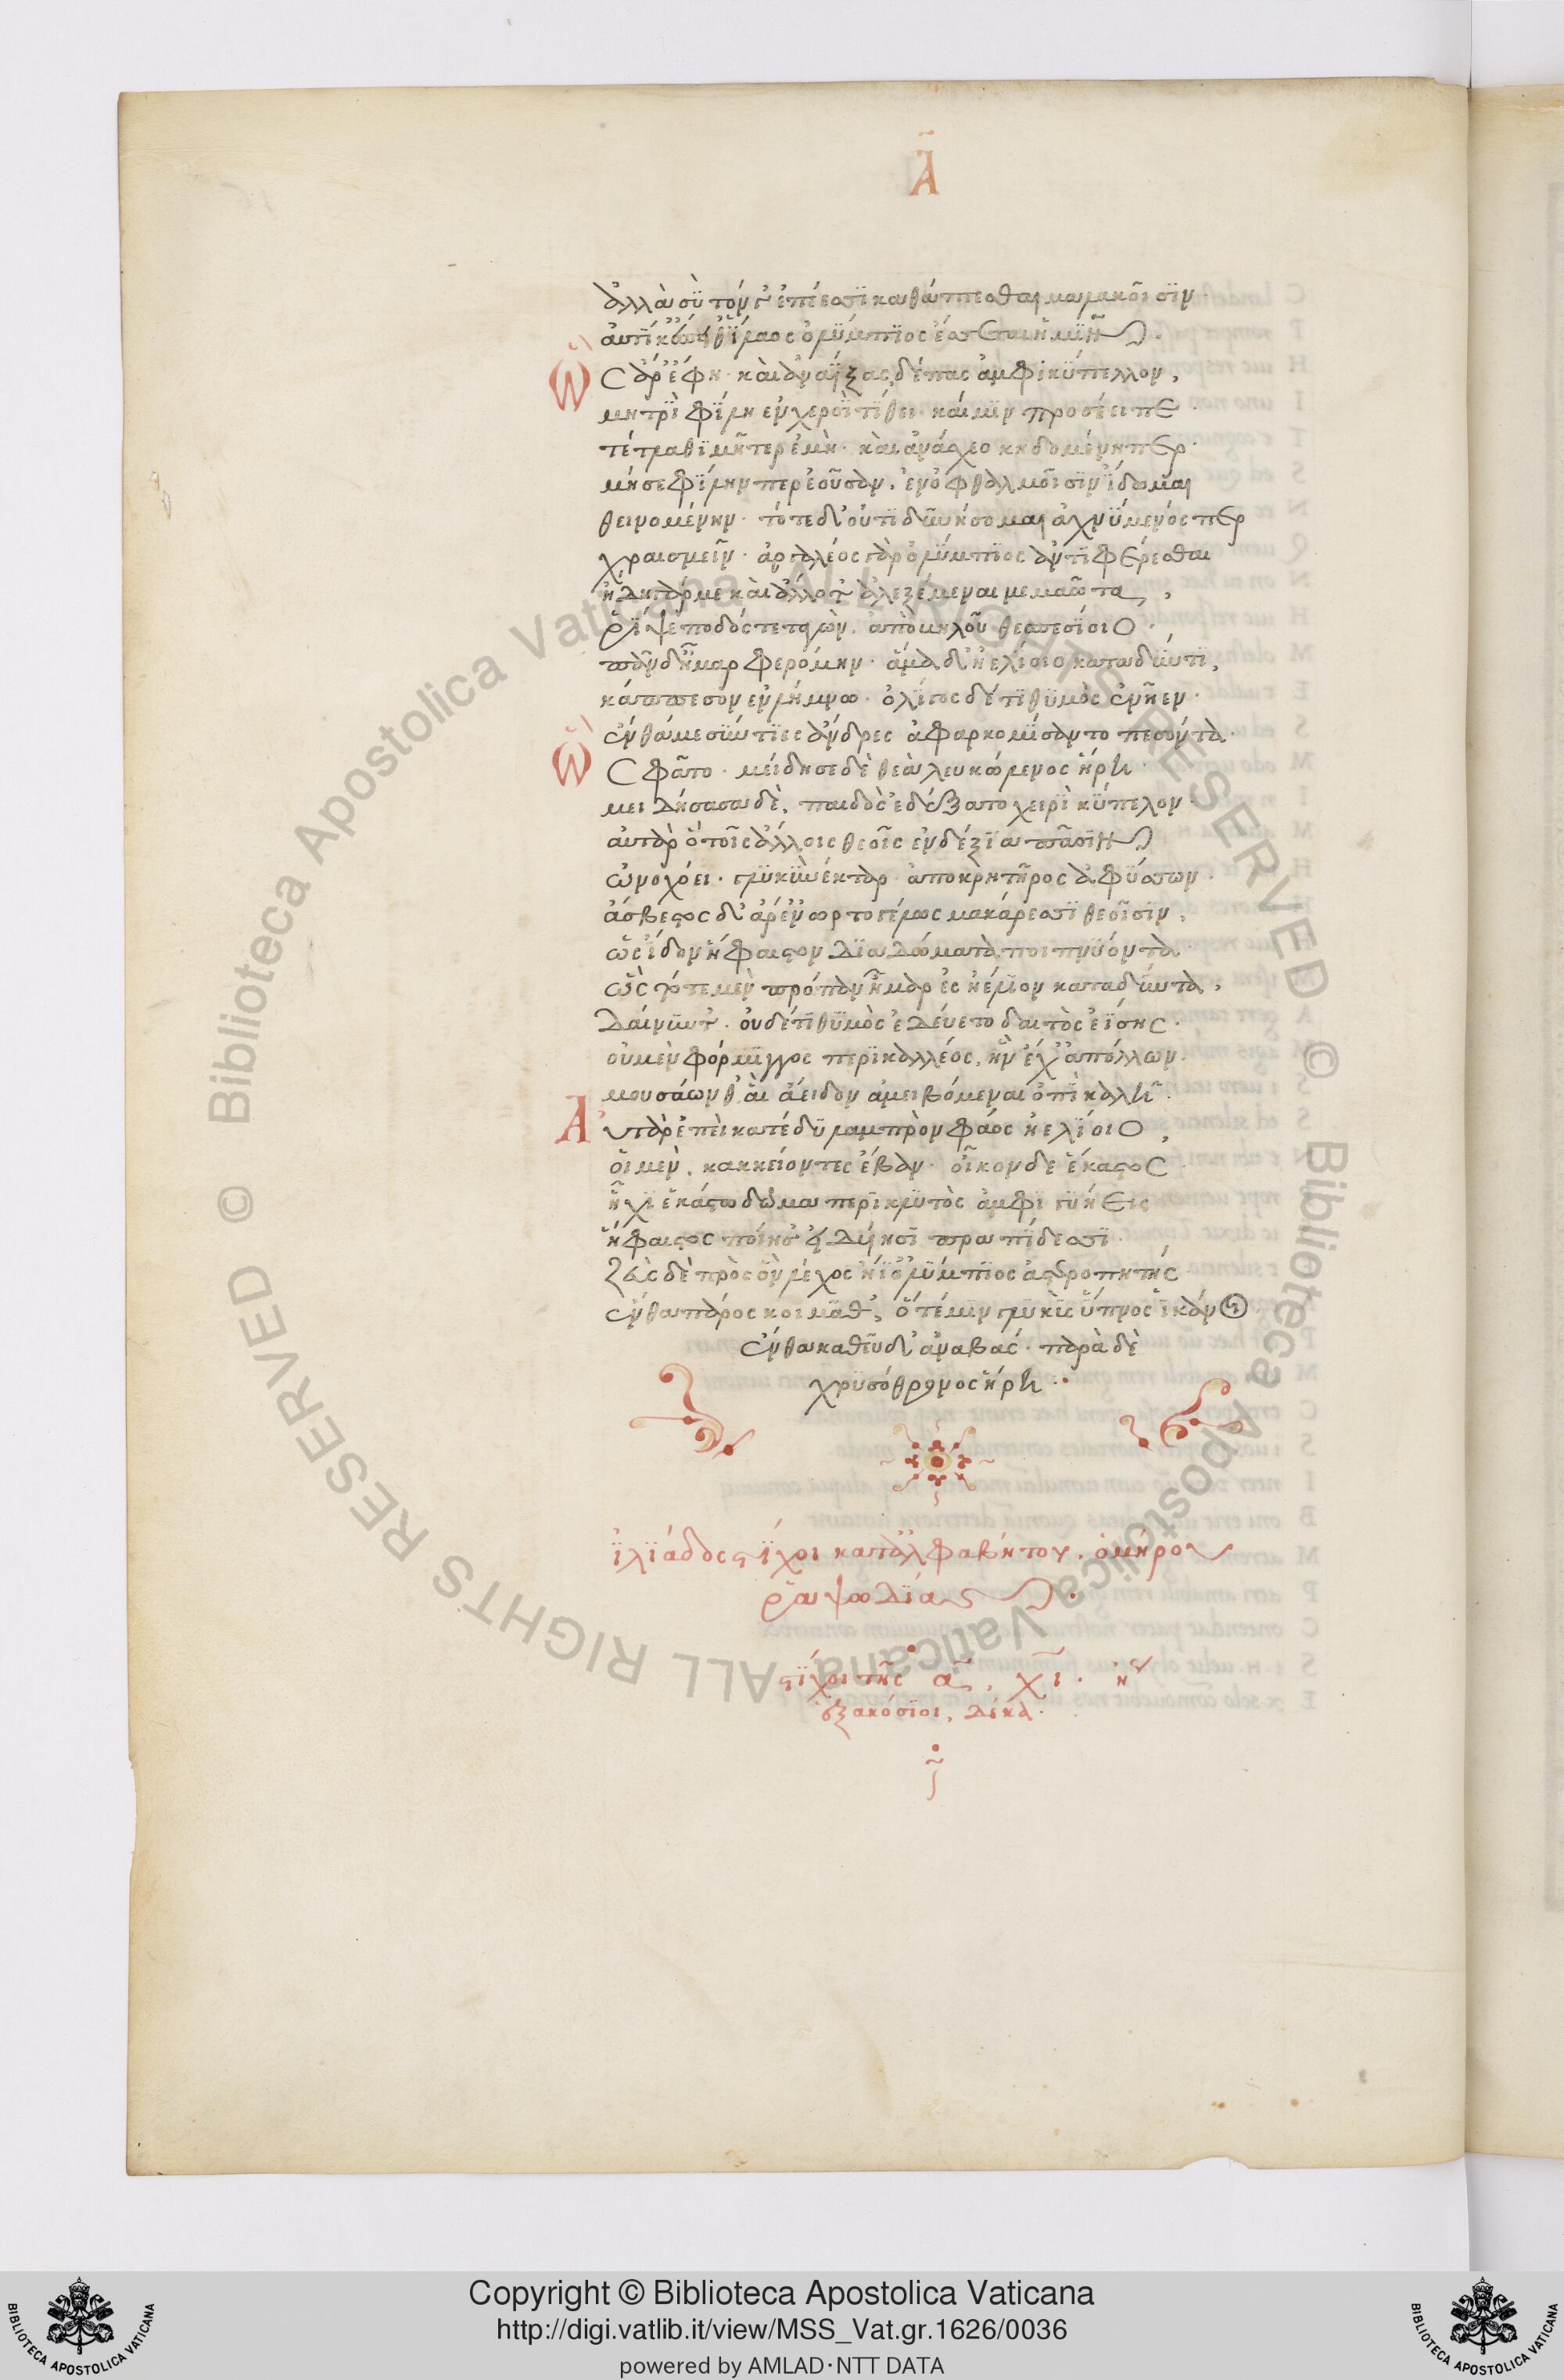 Ᾱ
ἀλλὰ σὺ τόνγ' ἐπέεσσϊ καθάπτεσθαι μαλακοῖσϊν·
ἀυτίκ' ἔπειθ' ἵλαος ὀλύμπϊος ἔσσεται ἡμῖν.
Ὣς ἄρ' ἔφη· καὶ ἀναΐξας, δέπας ἀμφικύπελλον,
μητρὶ φίλη εν χερσὶ τίθει· καί μιν προσέειπε·
τέτλαθι μῆτερ ἐμὴ· καὶ ἀνάσχεο κηδομένη περ·
μή σε φίλην περ ἐοῦσαν, ἐν ὀφθαλμοῖσϊν ἴδωμαι
θεινομένην· τότε δ' οὔτι δυνήσομαι ἀχνύμενός περ
χραισμεῖν· ἀργαλέος γὰρ ὀλύμπϊος ἀντιφέρεσθαι
ἤδη γάρ με καὶ ἄλλοτ' ἀλεξέμεναι μεμαῶτα,
ῥῖψε ποδός τεταγὼν, ἀπὸ μηλοῦ θεσπεσίοιο·
πᾶν δ' ἦμαρ φερόμην· ἅμα δ' ἠελίοιο καταδύντι,
κάππεσον εν λήμνω· ὀλίγος δ' έτι θυμὸς ἐνῆεν·
ἔνθά με σίντιες ἄνδρες ἀφαρ κομίσαντο πεσόντα·
Ὣς φάτο· μείδησε δὲ θεὰ λευκώλενος ἥρη·
μειδήσασα δὲ, παιδὸς ἐδέξατο χειρὶ κύπελον·
ἀυτὰρ ὁ τοῖς ἄλλοις θεοῖς ενδέξια πᾶσιν
ὠνοχόει· γλυκὺ νέκταρ ἀπο κρητῆρος ἀφύσσων·
ἄσβεστος δ' ἄρ' ἐνῶρτο γέλως μακάρεσσϊ θεοῖσϊν,
ὡς ἴδον ἥφαιστον διὰ δώματα ποιπνύοντα·
ὣς τότε μὲν πρόπαν ἦμαρ ἐς ἠέλϊον καταδύντα,
δαίνυντ'· ουδέ τι θυμὸς ἐδεύετο δαιτὸς ἐΐσης·
οὐ μὲν φόρμιγγος περικαλλέος, ἣν ἔχ' ἀπόλλων·
μουσάων θ' ἃι ἄειδον ἀμειβόμεναι ὀπὶ καλῆ·
Ἀυτὰρ ἐπεὶ κατέδυ λαμπρὸν φάος ἠελίοιο,
ὃι μὲν, κακκείοντες ἔβαν οἶκονδε ἕκαστος
ἧχι ἑκάστω δῶμα περικλυτὸς ἀμφιγυήεις
ἥφαιστος ποίησ' εἰδυίησι πραπίδεσσι·
ζεὺς δὲ πρὸς ὃν λέχος ἤϊ' ὀλύμπϊος ἀστεροπητής
ἔνθα πάρος κοιμᾶθ', ὅτέ μιν γλυκὺς ὕπνος ἱκάνοι
ἔνθα καθεῦδ' ἀναβάς· παρὰ δὲ
χρυσόθρονος ἥρη:
ἰλιάδος στίχοι κατ' ἀλφαβήτου. ὁμήρου
ῥαψωδίας.
στίχοι τῆς α, χι·
ἑξακόσιοι, δέκα·